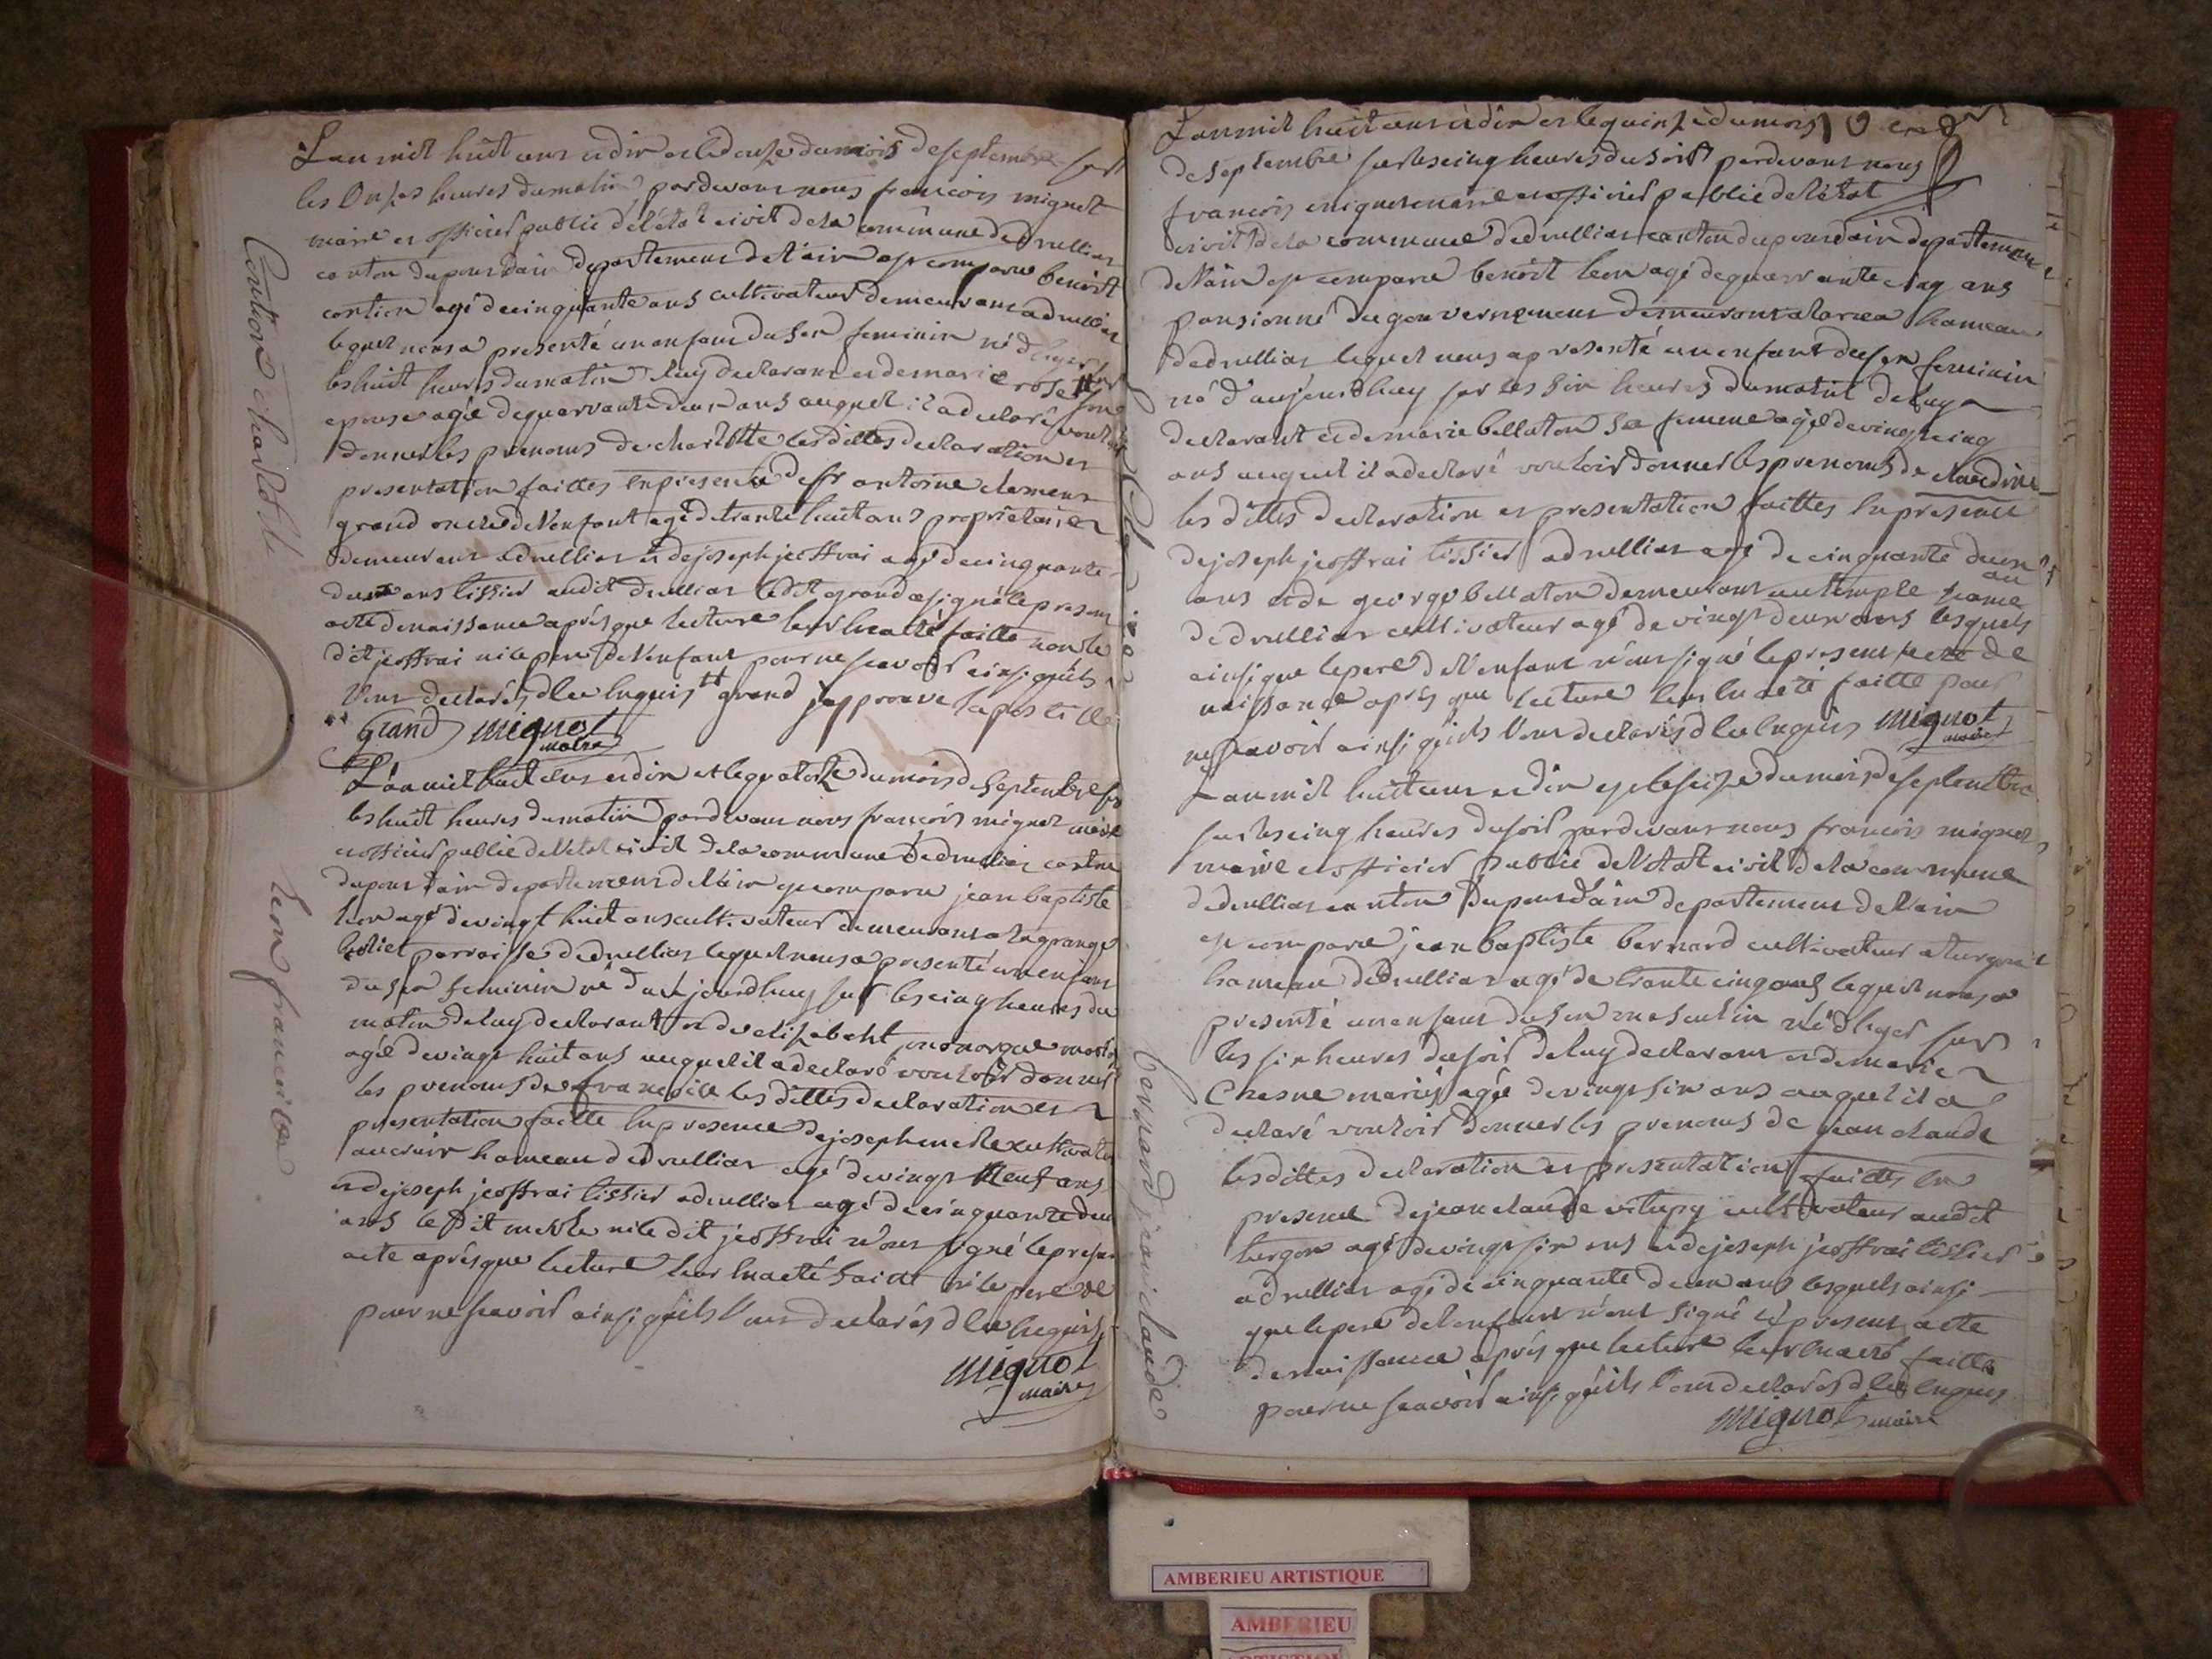 Contion charlotte
L'an mil huit cens et dix et le douze du mois de septembre sur
les Onzes heures du matin pardevant nous françois mignot
maire et officier public de l'état civil de la commune de druillias
canton du pons dain departement de l'ain est comparu benoit
contion agé de cinquante ans cultivateur demeurant a druillias
lequel nous a presenté un enfant du sex feminin né d'hyer sur
les huit heures du matin de luy declarant et de marie rose son
epouse agée de quarante deux ans auquel il a declaré vouloir
donner les prenoms de charlotte les dittes declaration et
presentation faittes en presence de sr antoine clement
grand oncle de l'enfant agé de trante huit ans propriétaire
demeurant a druillias et de joseph jeoffrai agé de cinquante
deux ans tissier audit druillias le dit grand a signé le present
acte de naissance aprés que lecture leur en a eté faitte non le
dit jeoffrai ni le pere de l'enfant pour ne scavoir ainsi qu'ils
l'ont declarés d'ce enquis grand japprouve lapostille
Grand mignot
maire
Leon francoise
L'an mil huit cens et dix et le quatorze du mois de septembre sur
les huit heures du matin pardevant nous françois mignot maire
et officier public de l'etat civil de la commune de druillias canton
du pons dain departement de l'ain est comparu jean baptiste
leon agé de vingt huit ans cultivateur demeurant a la grange
parroisse de druillias lequel nous a presenté un enfant
du sex feminin né d'aujourdhuy sur les cinq heures du
matin de luy declarant et de elizabeht
agée de vingt huit ans auquel il a declaré vouloir donner
les prenoms de francoise les dittes declaration et
presentation faitte en presence de joseph cultivateur
hameau de druillias agé de vingt neuf ans
et de joseph jeoffrai tissier a druillias agé de cinquante deux
ans le dit ni le dit jeoffrai n'ont signé le present
acte aprésque lecture leur en a eté faitte ni le pere
pour ne scavoir ainsi qu'ils l'ont declarés d'ce enquis
mignot
maire
L'an mil huit cens et dix et le quinze du mois
de septembre sur les cinq heures du soir pardevant nous
francois mignot maire et officier public de l'état
civil de la commune de druillias canton du pons dain departement
de l'ain est comparu benoit leon agé de quarante cinq ans
pansionné du gouvernement demeurant hameau
de druillias lequel nous a presenté un enfant du sex feminin
né d'aujourdhuy sur les six heures du matin de luy
declarant et de marie bellaton sa femme agée de vingt cinq
ans auquel il a declaré vouloir donner les prenoms de claudine
les dittes declaration et presentation faittes en presence
de joseph jeoffrai tissier a druillias agé de cinquante deux
ans et de george bellaton demeurant au temple hameau
de druillias cultivateur agé de vingt deux ans lesquels
ainsi que le pere de l'enfant n'ont signé le present acte de
naissance aprés que lecture leur en a eté faitte pour
ne scavoir ainsi qu'ils l'ont declarés d'ce enquis mignot
maire
bernard jean claude
L'an mil huit cens et dix et le seize du mois de septembre
sur les cinq heures du soir pardevant nous francois mignot
maire et officier public de l'etat civil de la commune
de druillias canton du pons dain departement de l'ain
est comparu jean baptiste bernard cultivateur a turgon
hameau de druillias agé de trante cinq ans lequel nous a
presenté un enfant du sex masculin né d'hyer sur
les six heures du soir de luy declarant et de marie
Chesne mariés agée de vingt six ans auquel il a
declaré vouloir donner les prenoms de jean claude
les dittes declaration et presentation faittes en
presence de jean claude cultivateur audit
turgon agé de vingt six ans et de joseph jeoffrai tissier
a druillias agé de cinquante deux ans lesquels ainsi
que le pere de l'enfant n'ont signé le present acte
de naissance aprés que lecture leur en a eté faitte
pour ne scavoir ainsi qu'ils l'ont declarés d'ce enquis
mignot maire
AMBERIEU ARTISTIQUE
AMBERIEU
ARTISTIQUE